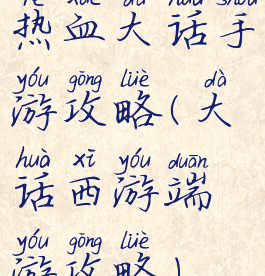 rè xuè dà huà shǒu
热血大话手
yóu gōng lüè dà
游攻略(大
huà xī yóu duān
话西游端
yóu gōng lüè
游攻略)